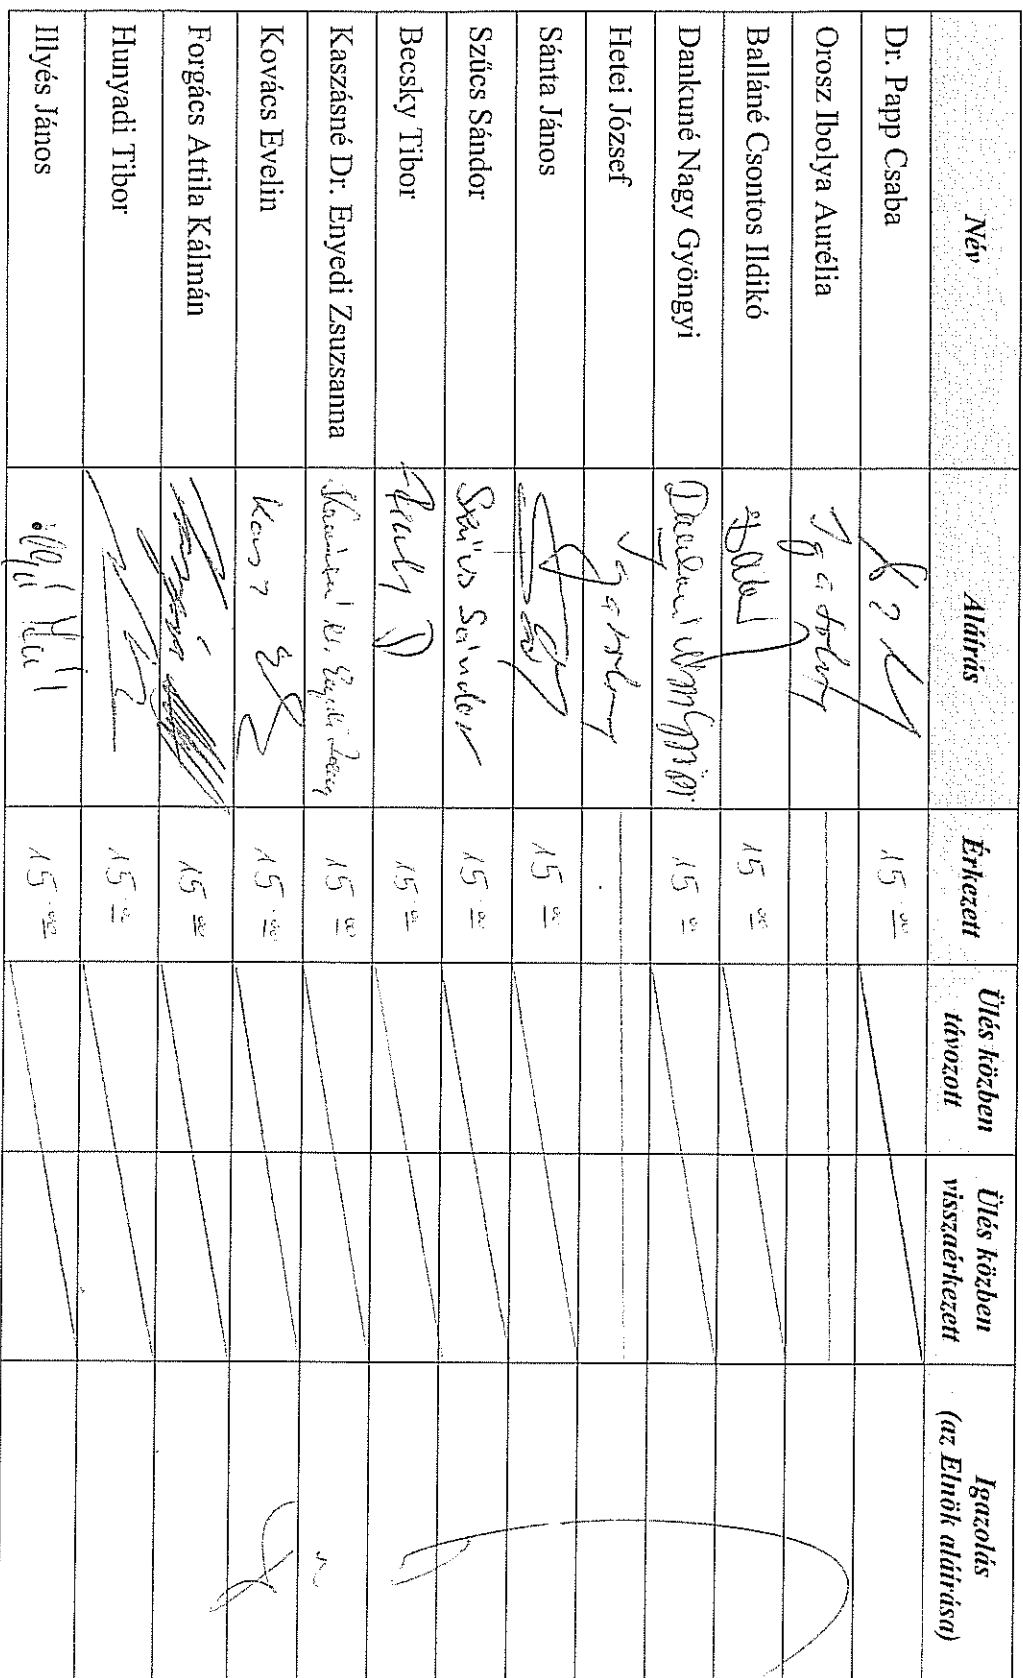 Név Aláírás Érkezett Ülés közben távozott Ülés közben visszaérkezett Igazolás (az Elnök aláírása)
Dr. Papp Csaba 15 00
Orosz Ibolya Aurélia Igazolt
Balláné Csontos Ildikó 15 00
Dankuné Nagy Gyöngyi 15 00
Hetei József Igazolt
Sánta János 15 00
Szűcs Sándor Szűcs Sándor 15 00
Becsky Tibor 15 00
Kaszásné Dr. Enyedi Zsuzsanna 15 00
Kovács Evelin 15 00
Forgács Attila Kálmán 15 00
Hunyadi Tibor 15 00
Illyés János 15 00